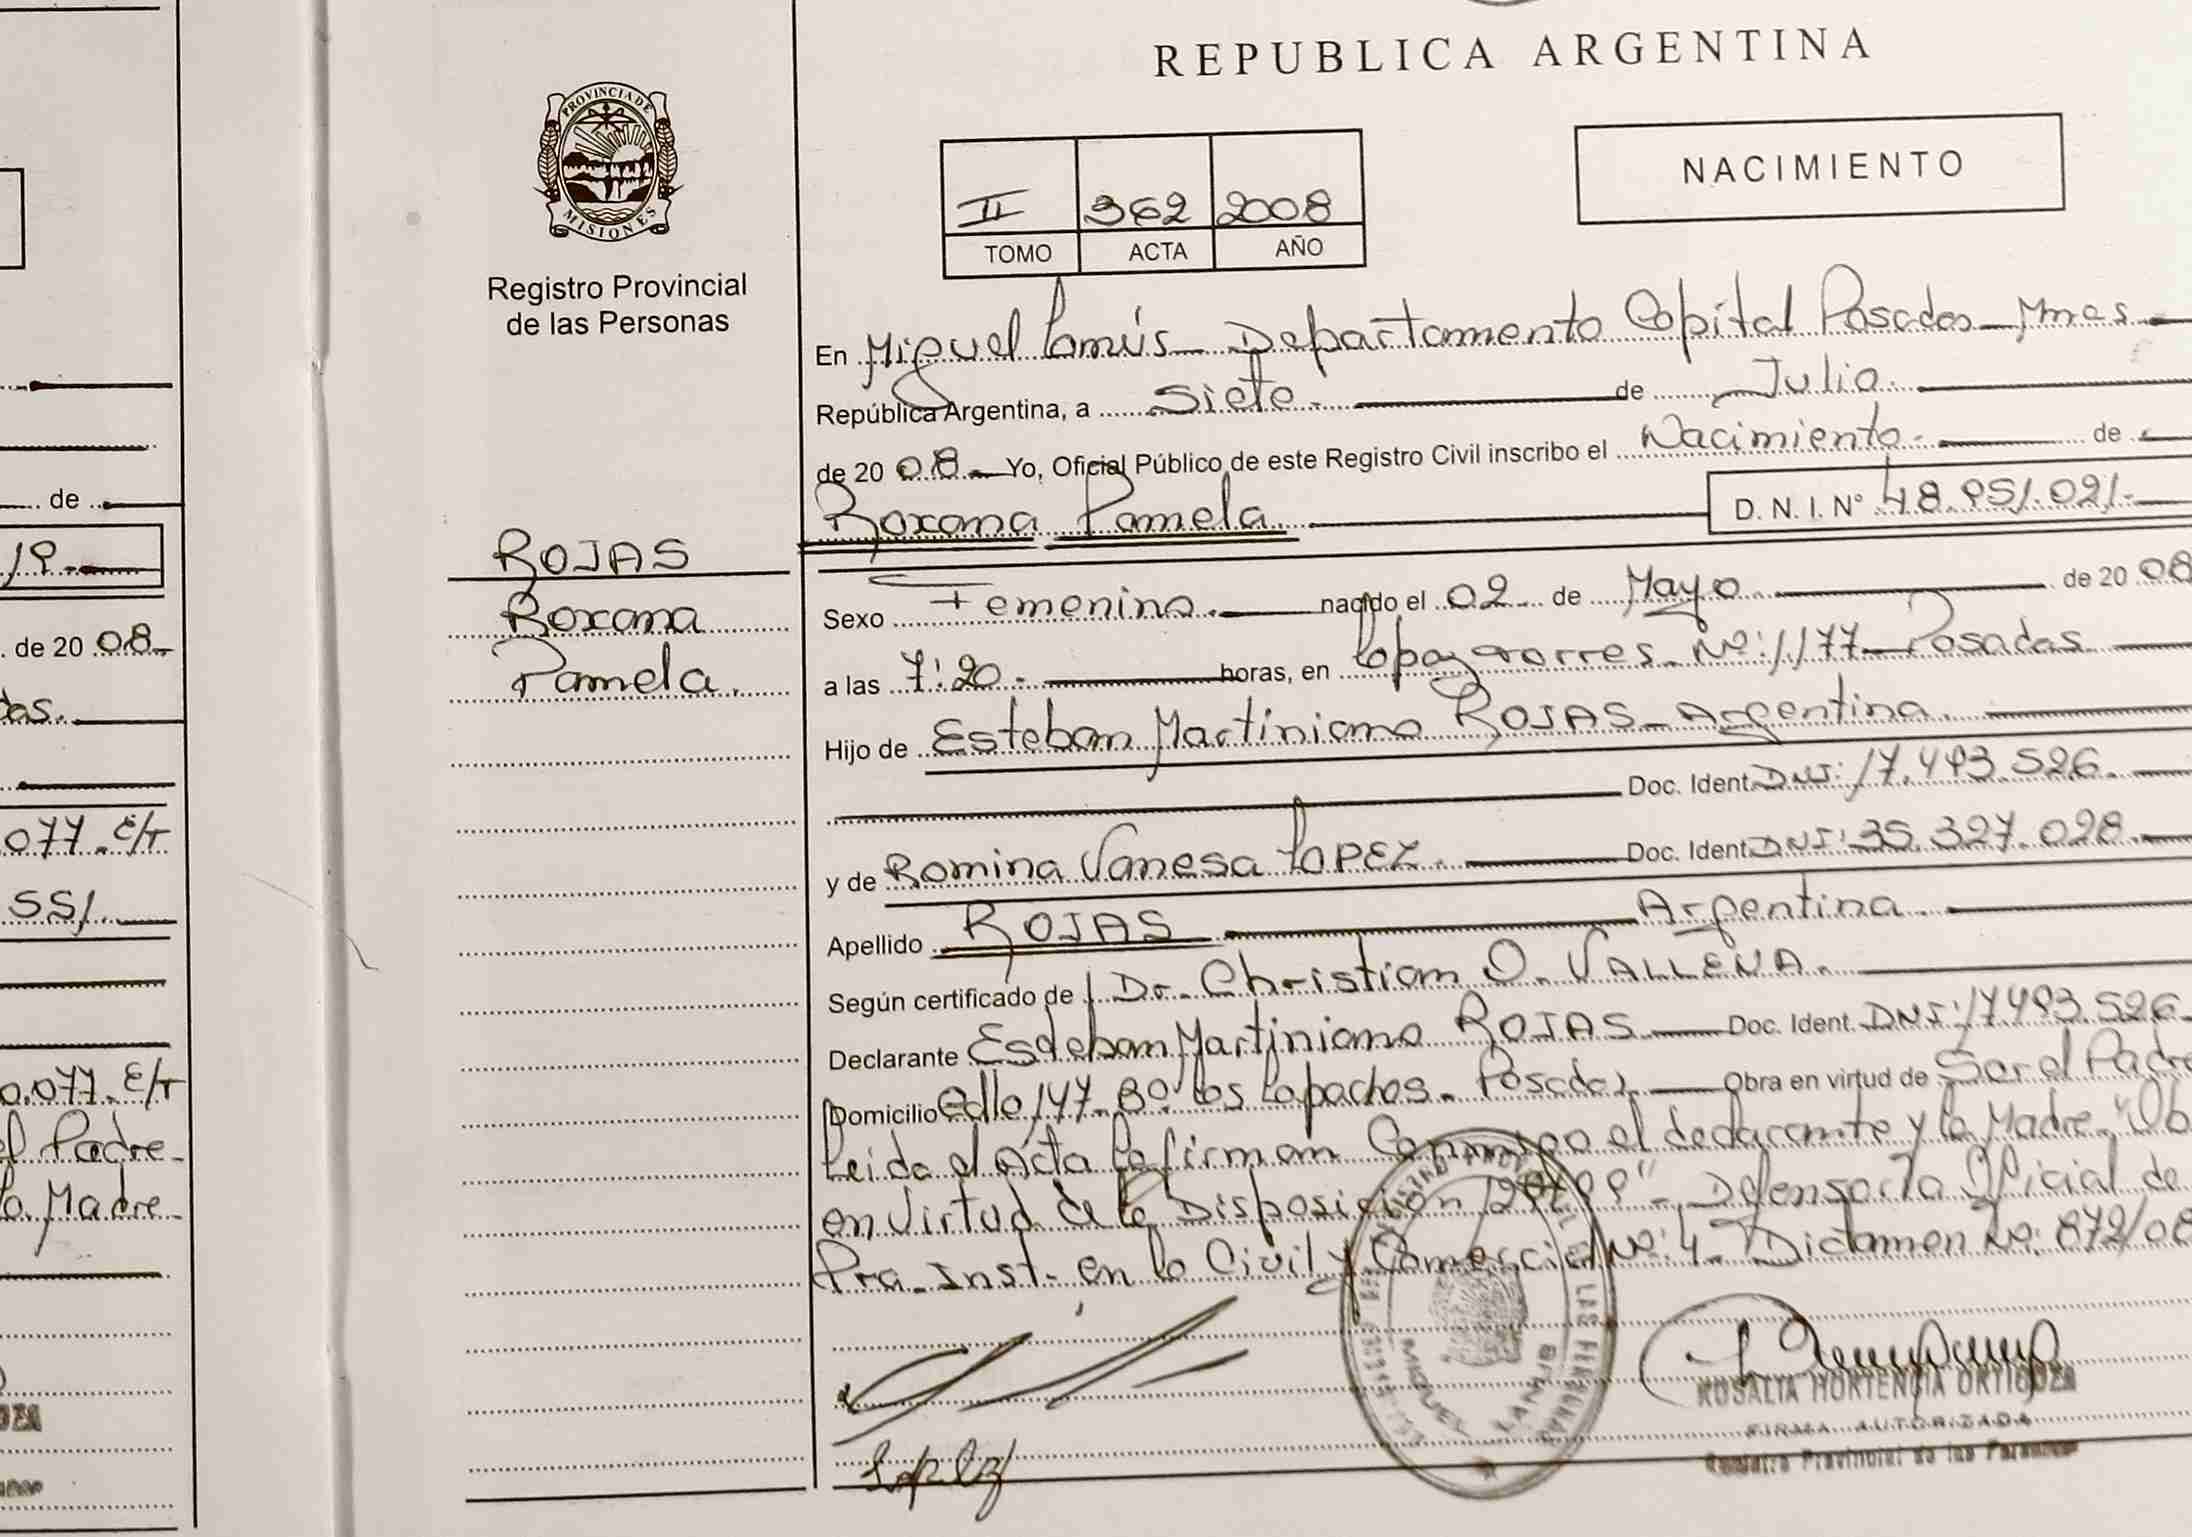 REPUBLICA ARGENTINA
PROVINCIA DE
MISIONES
Registro Provincial
de las Personas
II 362 2008
TOMO ACTA AÑO
NACIMIENTO
En Miguel Lanús - Departamento Capital Posadas - Mnes -
República Argentina, a Siete. de Julio.
de 20 08. Yo, Oficial Público de este Registro Civil inscribo el Nacimiento. de
Roxana Pamela. D. N. I. Nº 48.951.021.-
ROJAS
Roxana
Pamela.
Sexo Femenino. nacido el 02 de Mayo de 2008
a las 7:20. horas, en Lopez torres - Nº: 1177 - Posadas
Hijo de Esteban Martiniano ROJAS - Argentina.
Doc. Ident. DNI: 17.493.526.
y de Romina Vanesa LOPEZ. Doc. Ident. DNI: 35.327.028.
Apellido ROJAS Argentina.
Según certificado de Dr. Christian O. VALLENA.
Declarante Esteban Martiniano ROJAS Doc. Ident. DNI: 17493.526.
Domicilio Edllo 147 - Bº Los Lapachos - Posadas Obra en virtud de Ser el Padre
Leida el Acta la firman Conmigo el declarante y la Madre - "Ob
en virtud de la Disposición Defensoría Oficial de
Pra - Inst. en lo Civil y Comercial Nº: 4 - Dictamen No: 872/08
MIGUEL LANUS
LAS PERSONAS
Lopez
ROSALIA HORTENCIA ORTIGOZA
FIRMA AUTORIZADA
Registro Provincial de las Personas
de
19.-
de 20 08.-
das.
077. E/T
551.
0.077. E/T
el Padre -
la Madre -
OZA